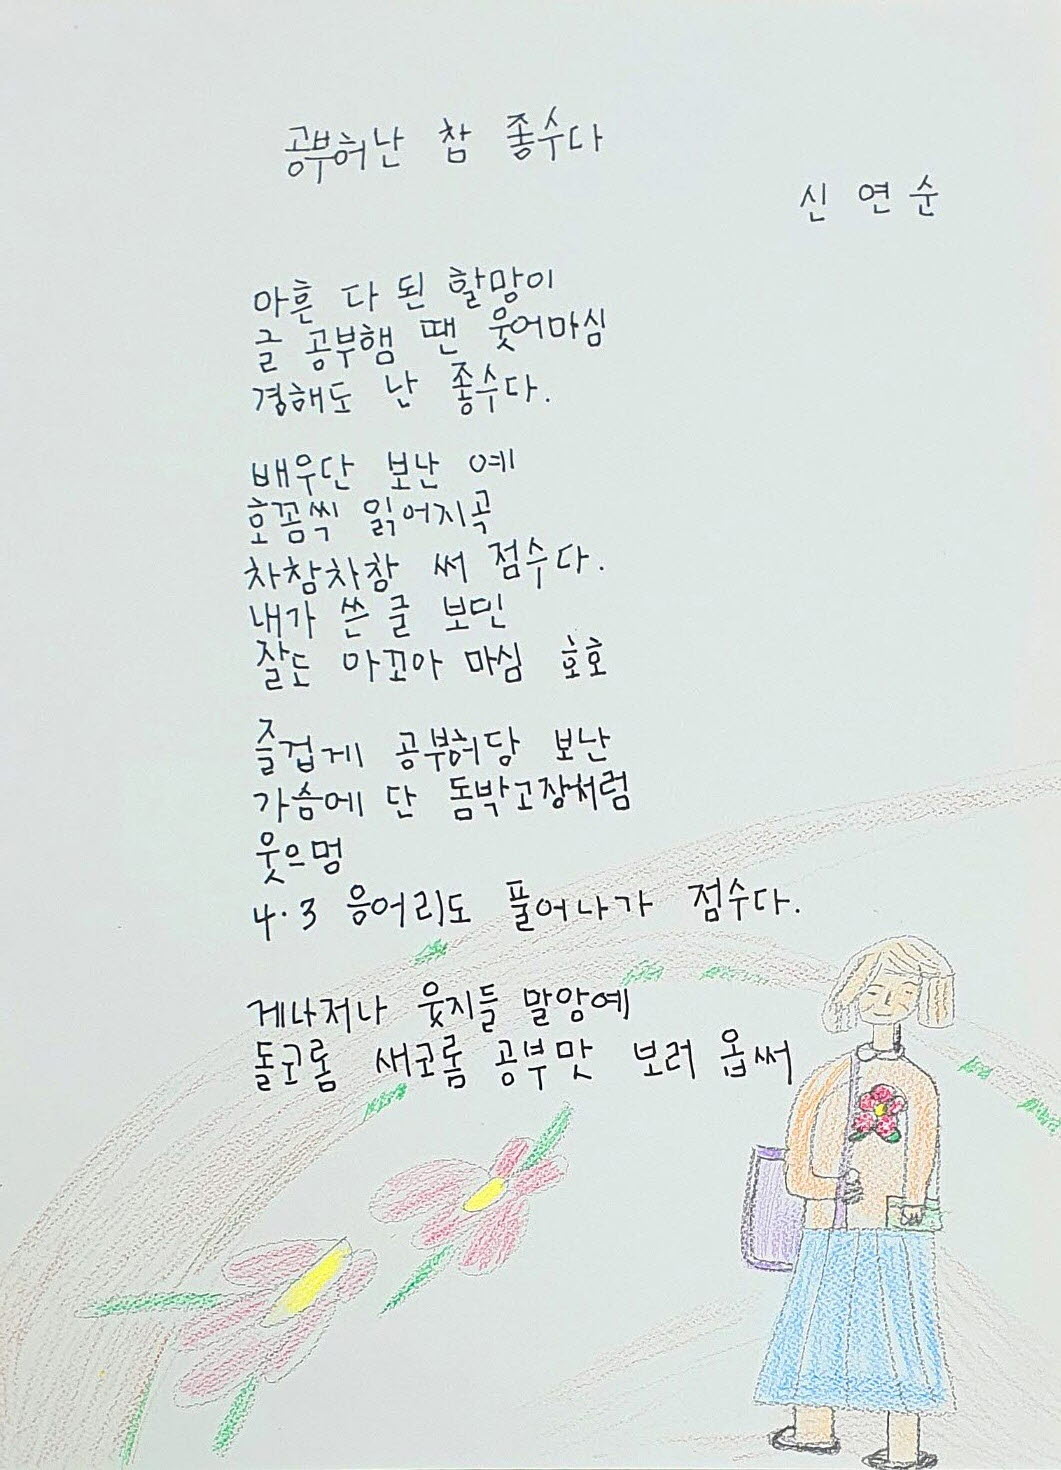 공부허난 참 좋수다
신 연 순
아흔 다 된 할망이
글 공부햄 땐 웃어마심
경해도 난 좋수다.
배우단 보난 예
호꼼씩 읽어지곡
차참차창 써 점수다.
내가 쓴 글 보민
잘도 아꼬아 마심 호호
즐겁게 공부허당 보난
가슴에 단 돔박고장처럼
웃으멍
4·3 응어리도 풀어나가 점수다.
게나저나 웃지들 말앙예
돌코롬 새코롬 공부맛 보러 옵써